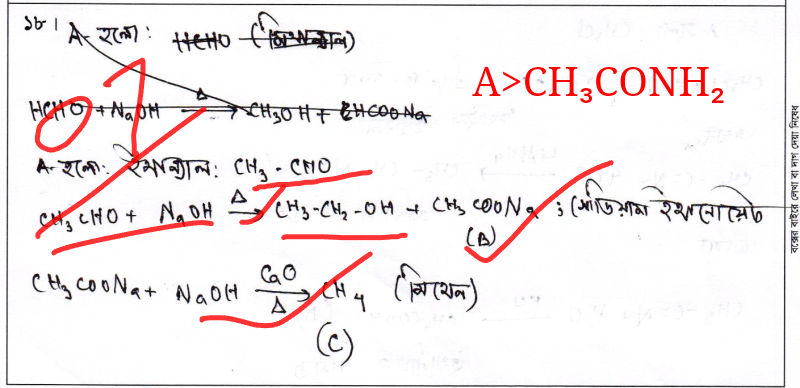 ১৮। A- হলো: HCHO (মিথান্যাল)
A>CH₃CONH₂
HCHO + NaOH —Δ→ CH₃OH + CHCOONa
A- হলো: ইথান্যাল: CH₃ - CHO
CH₃CHO + NaOH —Δ→ CH₃-CH₂-OH + CH₃COONa ; সোডিয়াম ইথানোয়েট
(B)
CH₃COONa + NaOH —CaO/Δ→ CH₄ (মিথেন)
(C)
বক্সের বাইরে লেখা বা দাগ দেয়া নিষেধ